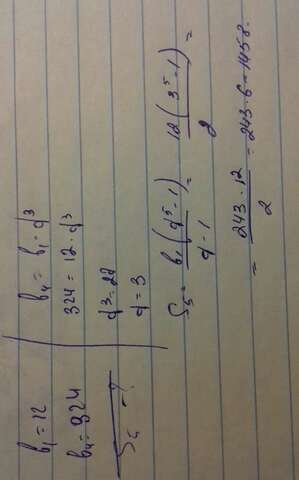 b₁ = 12
b₄ = 324
S₅ - ?
b₄ = b₁ · q³
324 = 12 · q³
q³ = 27
q = 3
S₅ = b₁(q⁵ - 1) / q - 1 = 12(3⁵ - 1) / 2 =
= 243 · 12 / 2 = 243 · 6 = 1458.